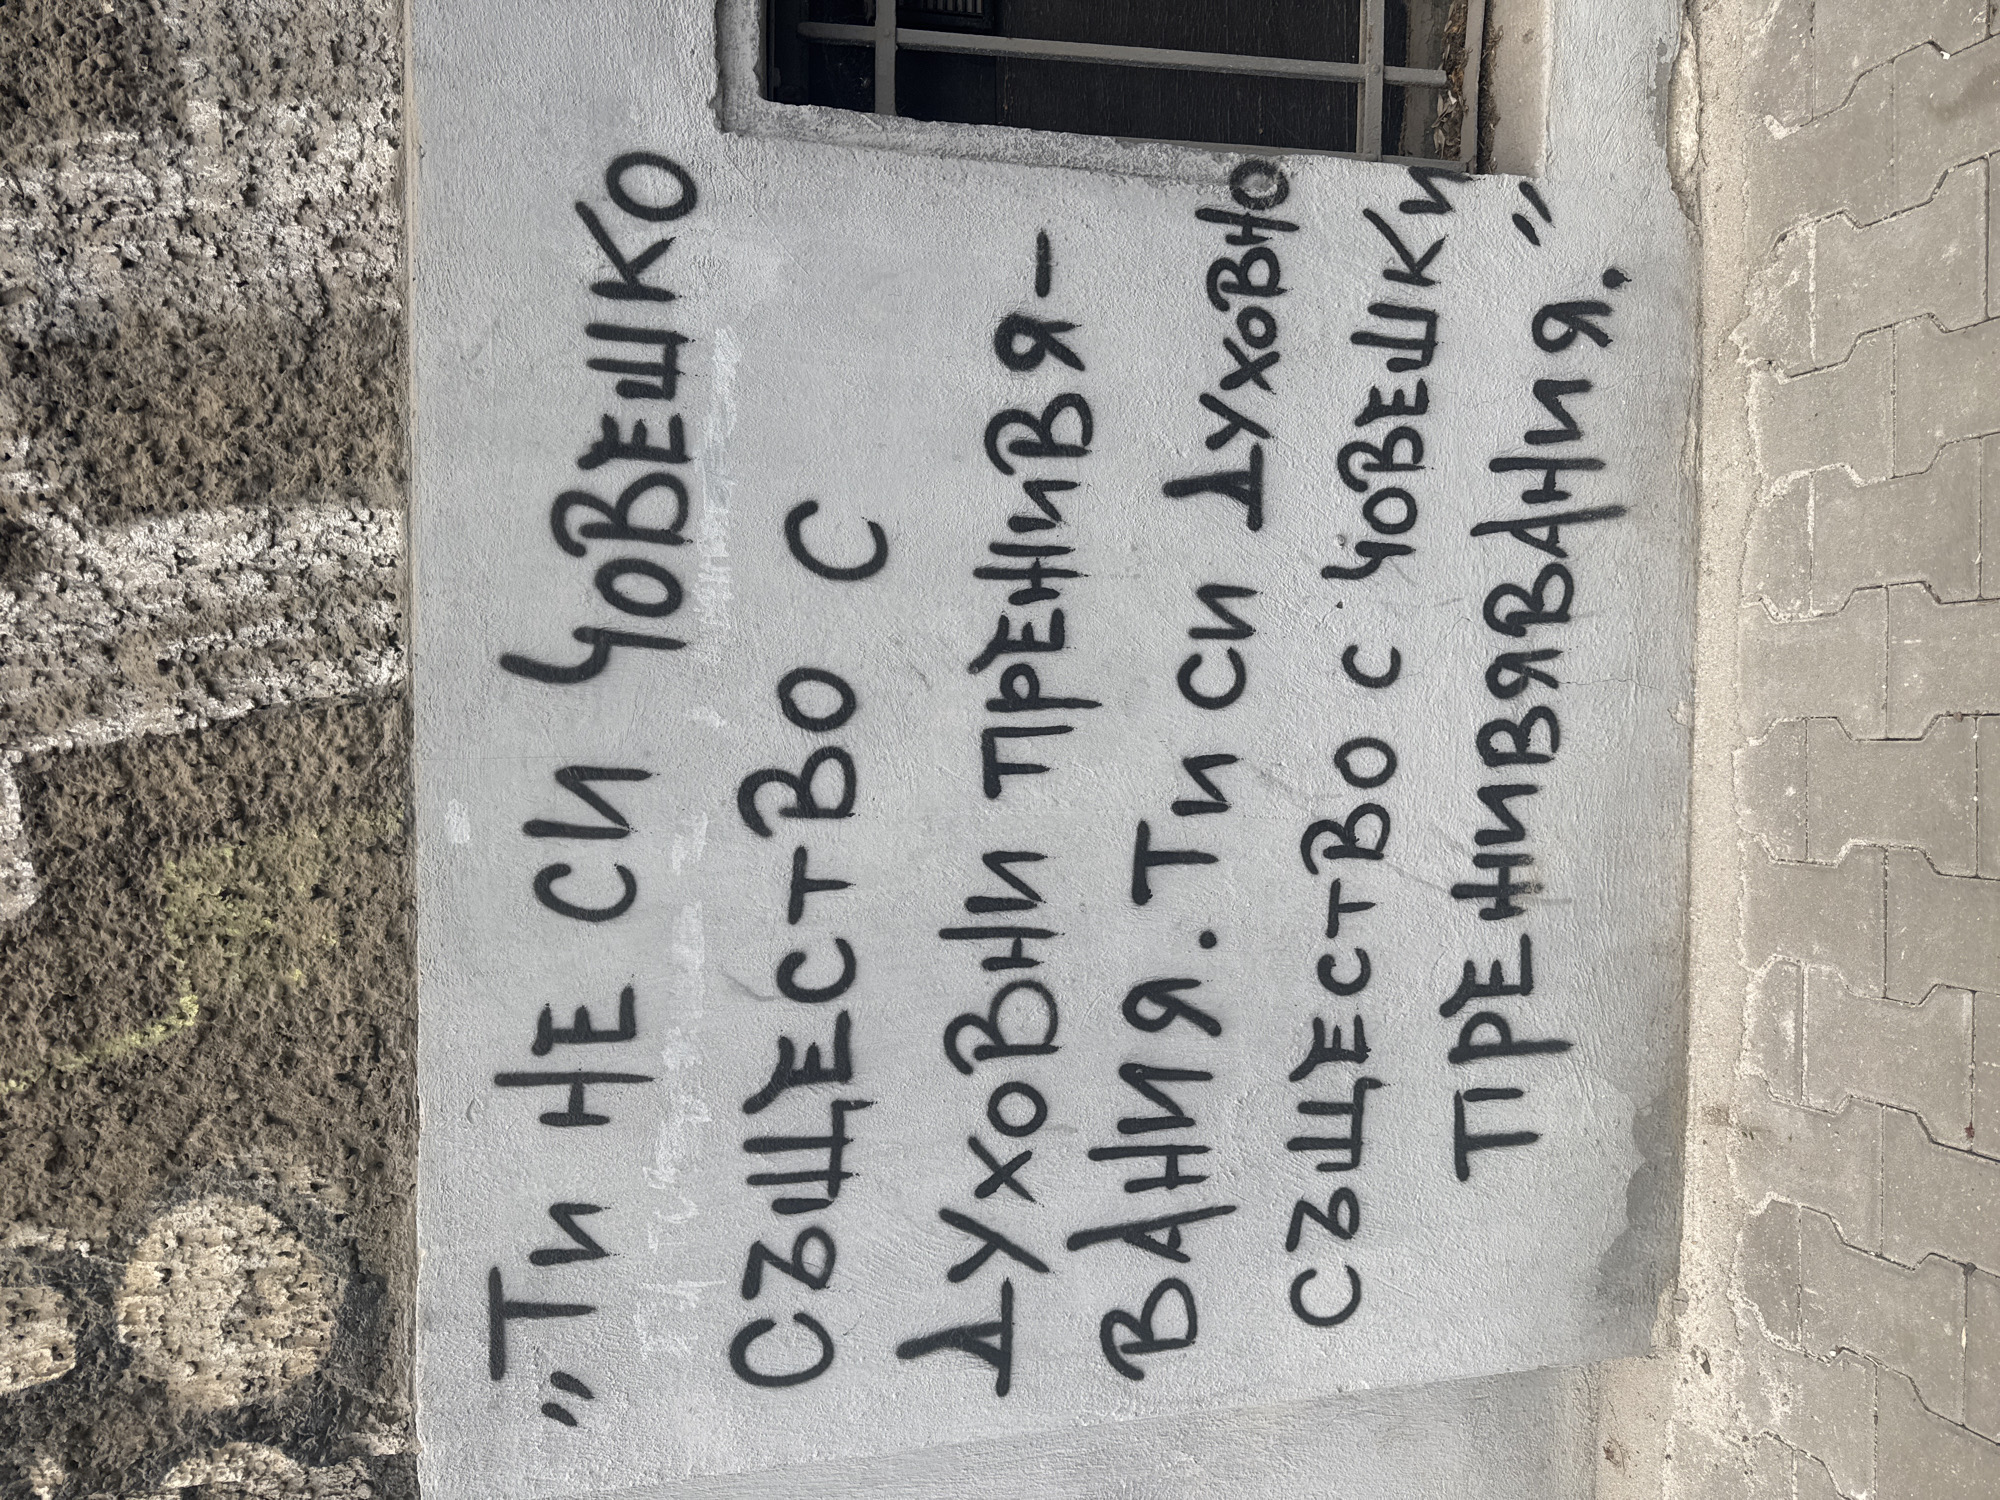 „Ти не си човешко
същество с
духовни пренивя-
вания. Ти си духовно
същество с човешки
пренивявания."